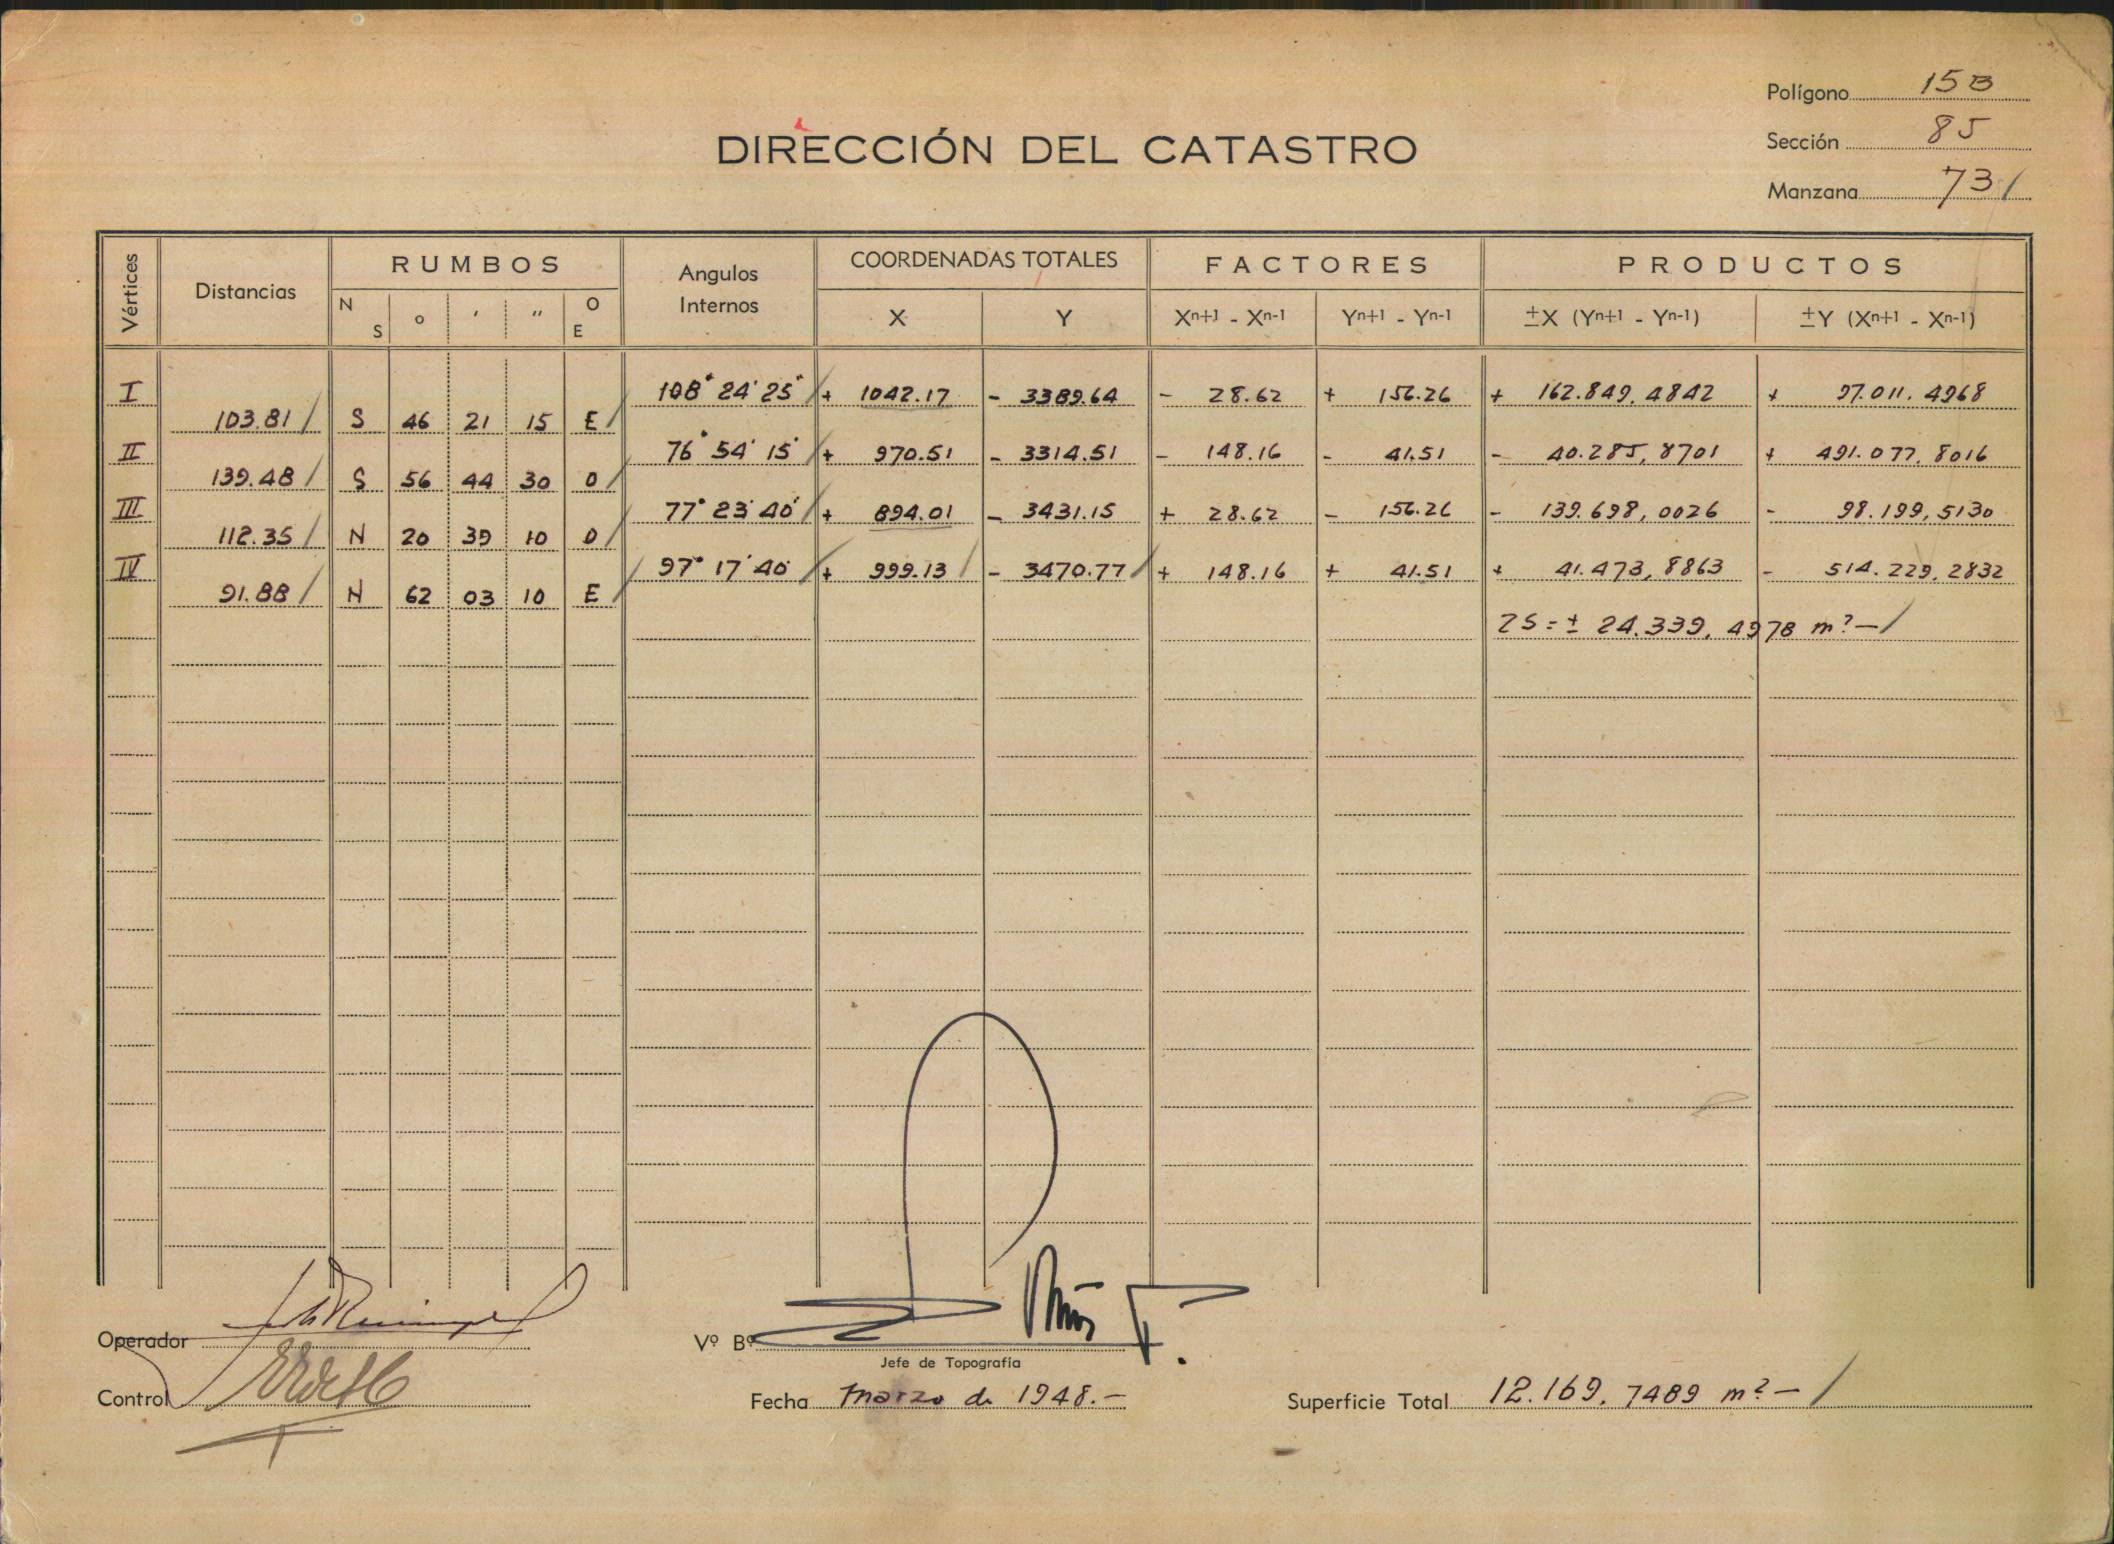 Polígono 15B
DIRECCIÓN DEL CATASTRO
Sección 85
Manzana 73
Vértices
Distancias
RUMBOS
N S ° ' " O E
Angulos Internos
COORDENADAS TOTALES
X Y
FACTORES
Xn+1 - Xn-1 Yn+1 - Yn-1
PRODUCTOS
±X (Yn+1 - Yn-1) ±Y (Xn+1 - Xn-1)
I 108° 24' 25" + 1042.17 - 3389.64 - 28.62 + 156.26 + 162.849.4842 + 97.011.4968
103.81 S 46 21 15 E
II 76° 54' 15" + 970.51 - 3314.51 - 148.16 - 41.51 - 40.285,8701 + 491.077,8016
139.48 S 56 44 30 O
III 77° 23' 40" + 894.01 - 3431.15 + 28.62 - 156.26 - 139.698,0026 - 98.199,5130
112.35 N 20 39 10 O
IV 97° 17' 40" + 999.13 - 3470.77 + 148.16 + 41.51 + 41.473,8863 - 514.229,2832
91.88 N 62 03 10 E
2S = ± 24.339,4978 m²—
Operador
Vº Bº
Jefe de Topografía
Control
Fecha marzo de 1948.—
Superficie Total 12.169,7489 m²—